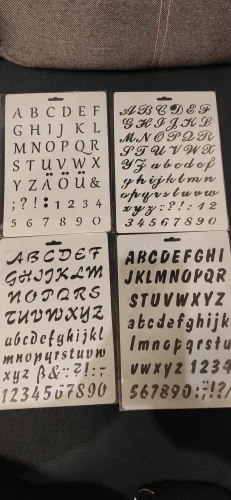 A B C D E F
G H I J K L
M N O P Q R
S T U V W X
Y Z Ä Ö Ü &
; ? ! : 1 2 3 4
5 6 7 8 9 0
A B C D E F
G H I J K L
M N O P Q R
S T U V W X
Y Z a b c d e f
g h i j k l m n
o p q r s t u v
w x y z : ? ! : 1 2
3 4 5 6 7 8 9 0
A B C D E F
G H I J K L M
N O P Q R S
T U V W X Y Z
a b c d e f g h i j k l
m n o p q r s t u v w
x y z ß & : ? ! : -
1 2 3 4 5 6 7 8 9 0
A B C D E F G H I
J K L M N O P Q R
S T U V W X Y Z
a b c d e f g h i j k
l m n o p q r s t u
v w x y z 1 2 3 4
5 6 7 8 9 0 : ; ! ? /